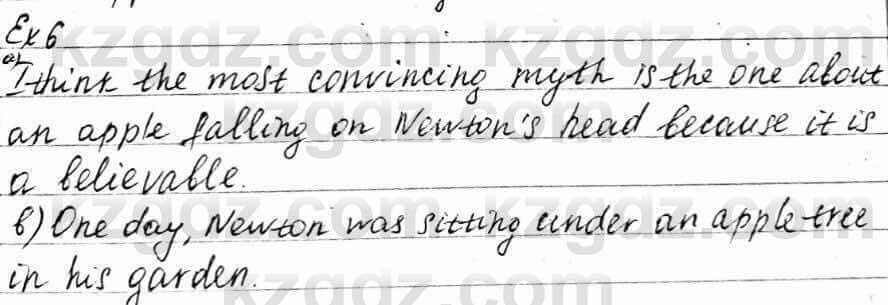 Ex 6
a) I think the most convincing myth is the one about
an apple falling on Newton's head because it is
a believable.
b) One day, Newton was sitting under an apple tree
in his garden.